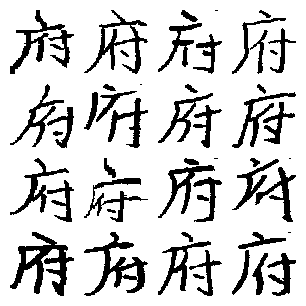 府府府府
府府府府
府府府府
府府府府